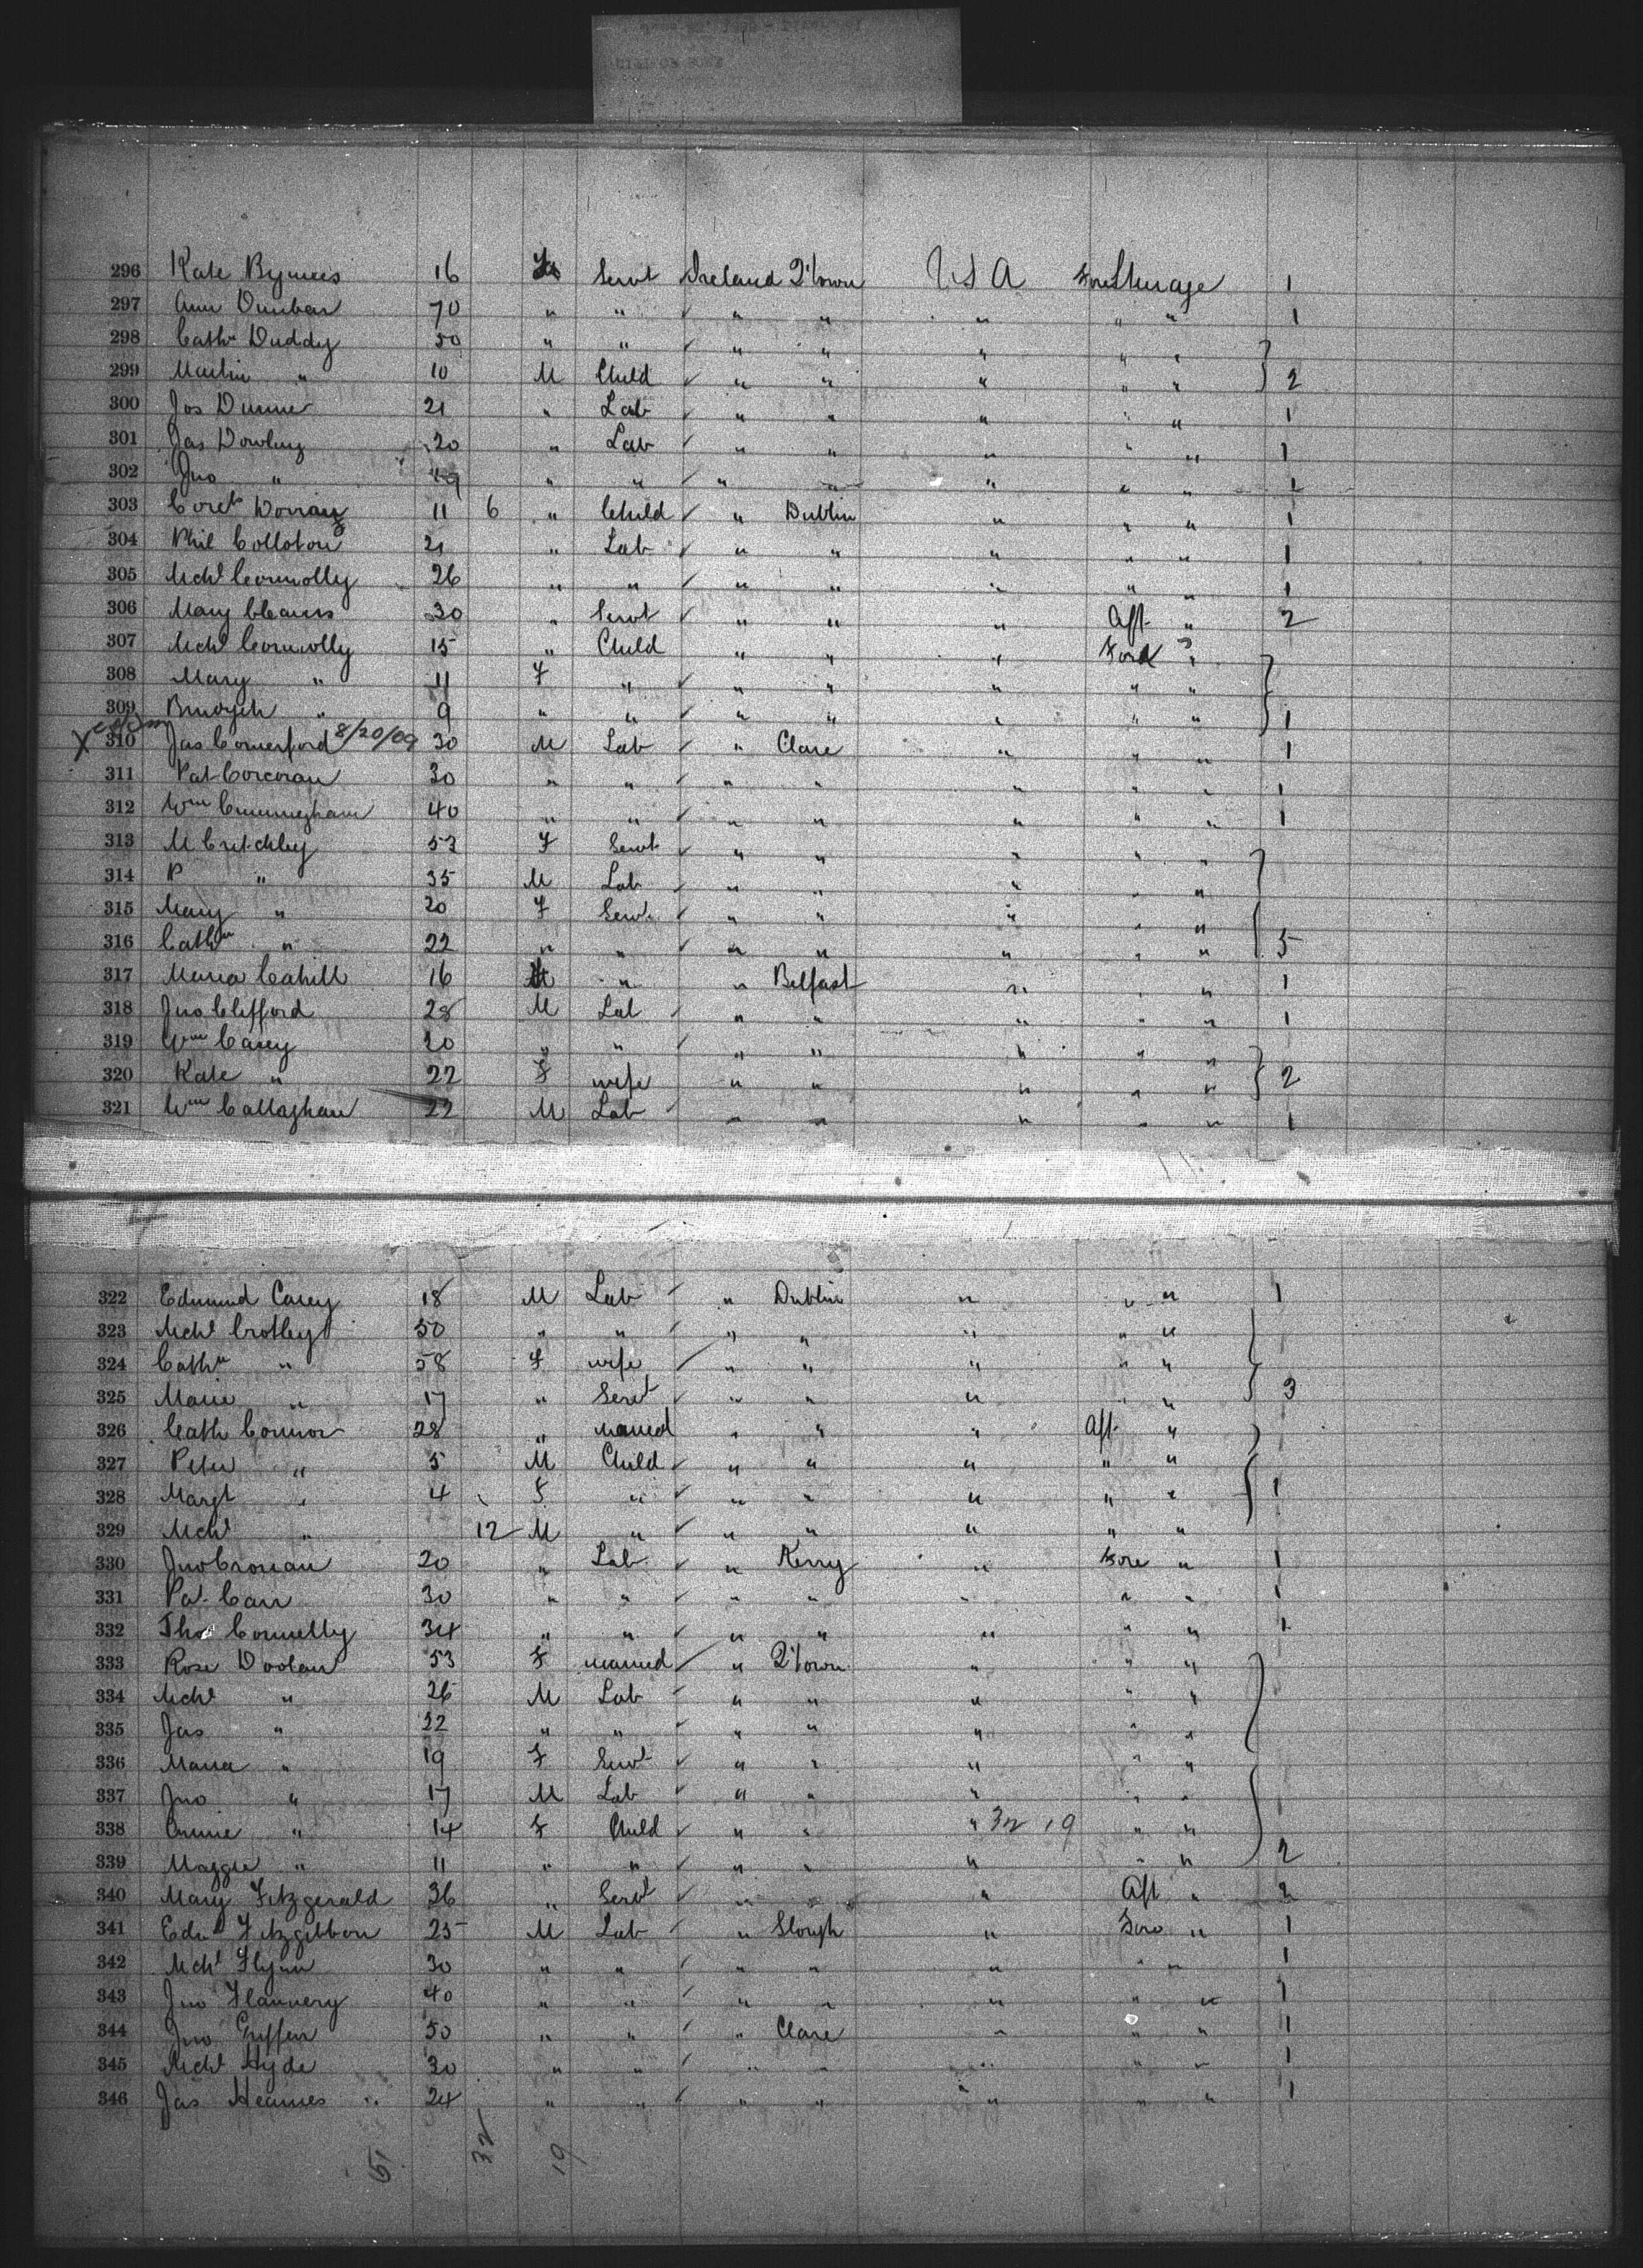 296 Kate Bymees 16 F Servt Ireland Q'town U S A Fore Steerage 1
297 Ann Dunbar 70 " " " " " " " 1
298 Cathe Duddy 50 " " " " " " "
299 Martin " 10 M Child " " " " " 2
300 Jas Dunne 21 " Lab " " " " " 1
301 Jas Dowling 20 " Lab " " " " " 1
302 Jno " " " " " " " " 1
303 11 6 " Child " Dublin " " " 1
304 Phil Colloton 21 " Lab " " " " " 1
305 Mchl Connolly 26 " " " " " " " 1
306 Mary 30 " Servt " " " Aft " 2
307 Mchl Connolly 15 " Child " " " Ford "
308 Mary " 11 F " " " " " "
309 " 9 " " " " " " " 1
310 Jas Comerford 8/20/09 30 M Lab " Clare " " " 1
311 Pat Corcoran 30 " " " " " " " 1
312 Wm Cunningham 40 " " " " " " " 1
313 M Critchley 53 F Servt " " " " "
314 P " 35 M Lab " " " " "
315 Mary " 20 F Servt " " " " "
316 Cathe " 22 " " " " " " " 5
317 Maria Cahill 16 " " Belfast " " " 1
318 Jno Clifford 28 M Lab " " " " " 1
319 Wm Carey 20 " " " " " " "
320 Kate " 22 F wife " " " " " 2
321 Wm Callaghan 22 M Lab " " " " " 1
322 Edmund Carey 18 M Lab " Dublin " " " 1
323 Mchl Crotley 50 " " " " " " "
324 Cathe " 58 F wife " " " " "
325 Marie " 17 " Servt " " " " " 3
326 Cath Connor 28 " married " " " Aft "
327 Peter " 5 M Child " " " " "
328 Margt " 4 F " " " " " " 1
329 Mchl " 12 M " " " " " "
330 Jno Cronan 20 " Lab " Kerry " Fore " 1
331 Pat Carr 30 " " " " " " " 1
332 Thos Connelly 34 " " " " " " " 1
333 Rose Doolan 53 F married " Q'town " " "
334 Mchl " 26 M Lab " " " " "
335 Jas " 22 " " " " " " "
336 Maria " 19 F Servt " " " " "
337 Jno " 17 M Lab " " " " "
338 Annie " 14 F Child " " " 32 19 " "
339 Maggie " 11 " " " " " " " 2
340 Mary Fitzgerald 36 " Servt " " " Aft " 2
341 Edw Fitzgibbon 25 M Lab " Slough " Fore " 1
342 Mchl Flynn 30 " " " " " " " 1
343 Jno Flannery 40 " " " " " " " 1
344 Jno Griffen 50 " " " Clare " " " 1
345 Mchl Hyde 30 " " " " " " " 1
346 Jas Hearnes 24 " " " " " " " 1
51 32 19